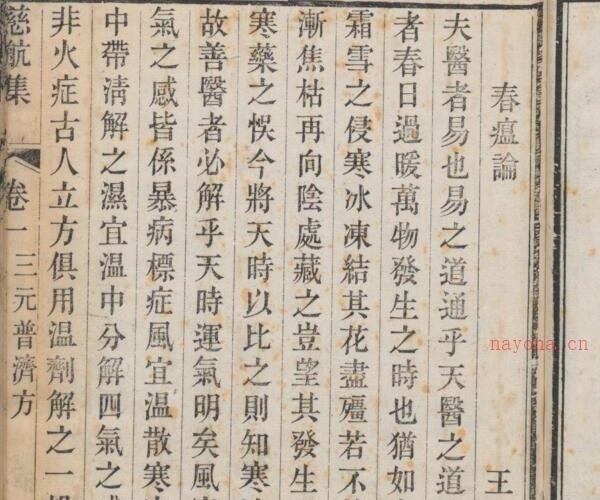 春瘟論
王
夫醫者易也易之道通乎天醫之道
者春日過暖萬物發生之時也猶如
霜雪之侵寒冰凍結其花盡殭若不
漸焦枯再向陰處藏之豈望其發生
寒藥之悞今將天時以比之則知寒
故善醫者必解乎天時運氣明矣風
氣之感皆係暴病標症風宜溫散寒
中帶淸解之濕宜溫中分解四氣之
非火症古人立方俱用溫劑解之一
慈航集
卷一
三元普濟方
nayona.cn